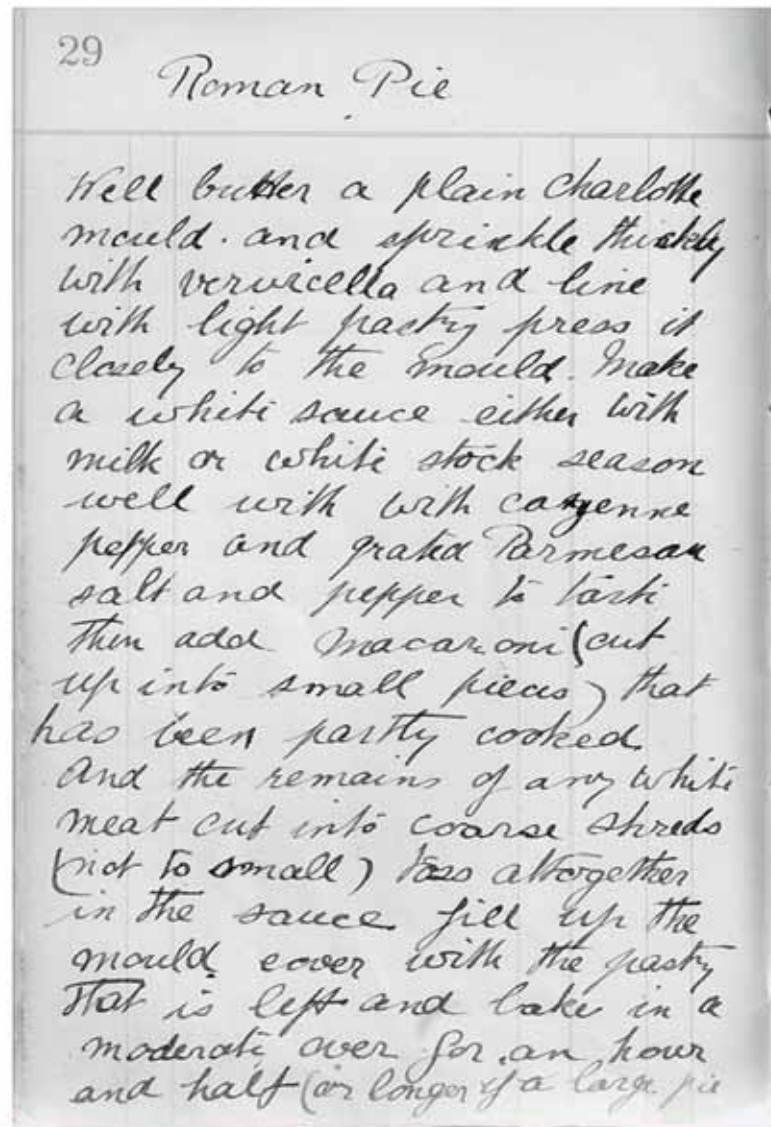 29
Roman Pie
Well butter a plain Charlotte
mould. and sprinkle thickly
with vervicella and line
with light pastry press it
closely to the mould. Make
a white sauce either with
milk or white stock season
well with with cayenne
pepper and grated Parmesan
salt and pepper to taste
then add Macaroni (cut
up into small pieces) that
has been partly cooked
And the remains of any white
meat cut into coarse shreds
(not to small) toss altogether
in the sauce fill up the
mould. cover with the pastry
that is left and bake in a
moderate oven for an hour
and half (or longer if a large pie